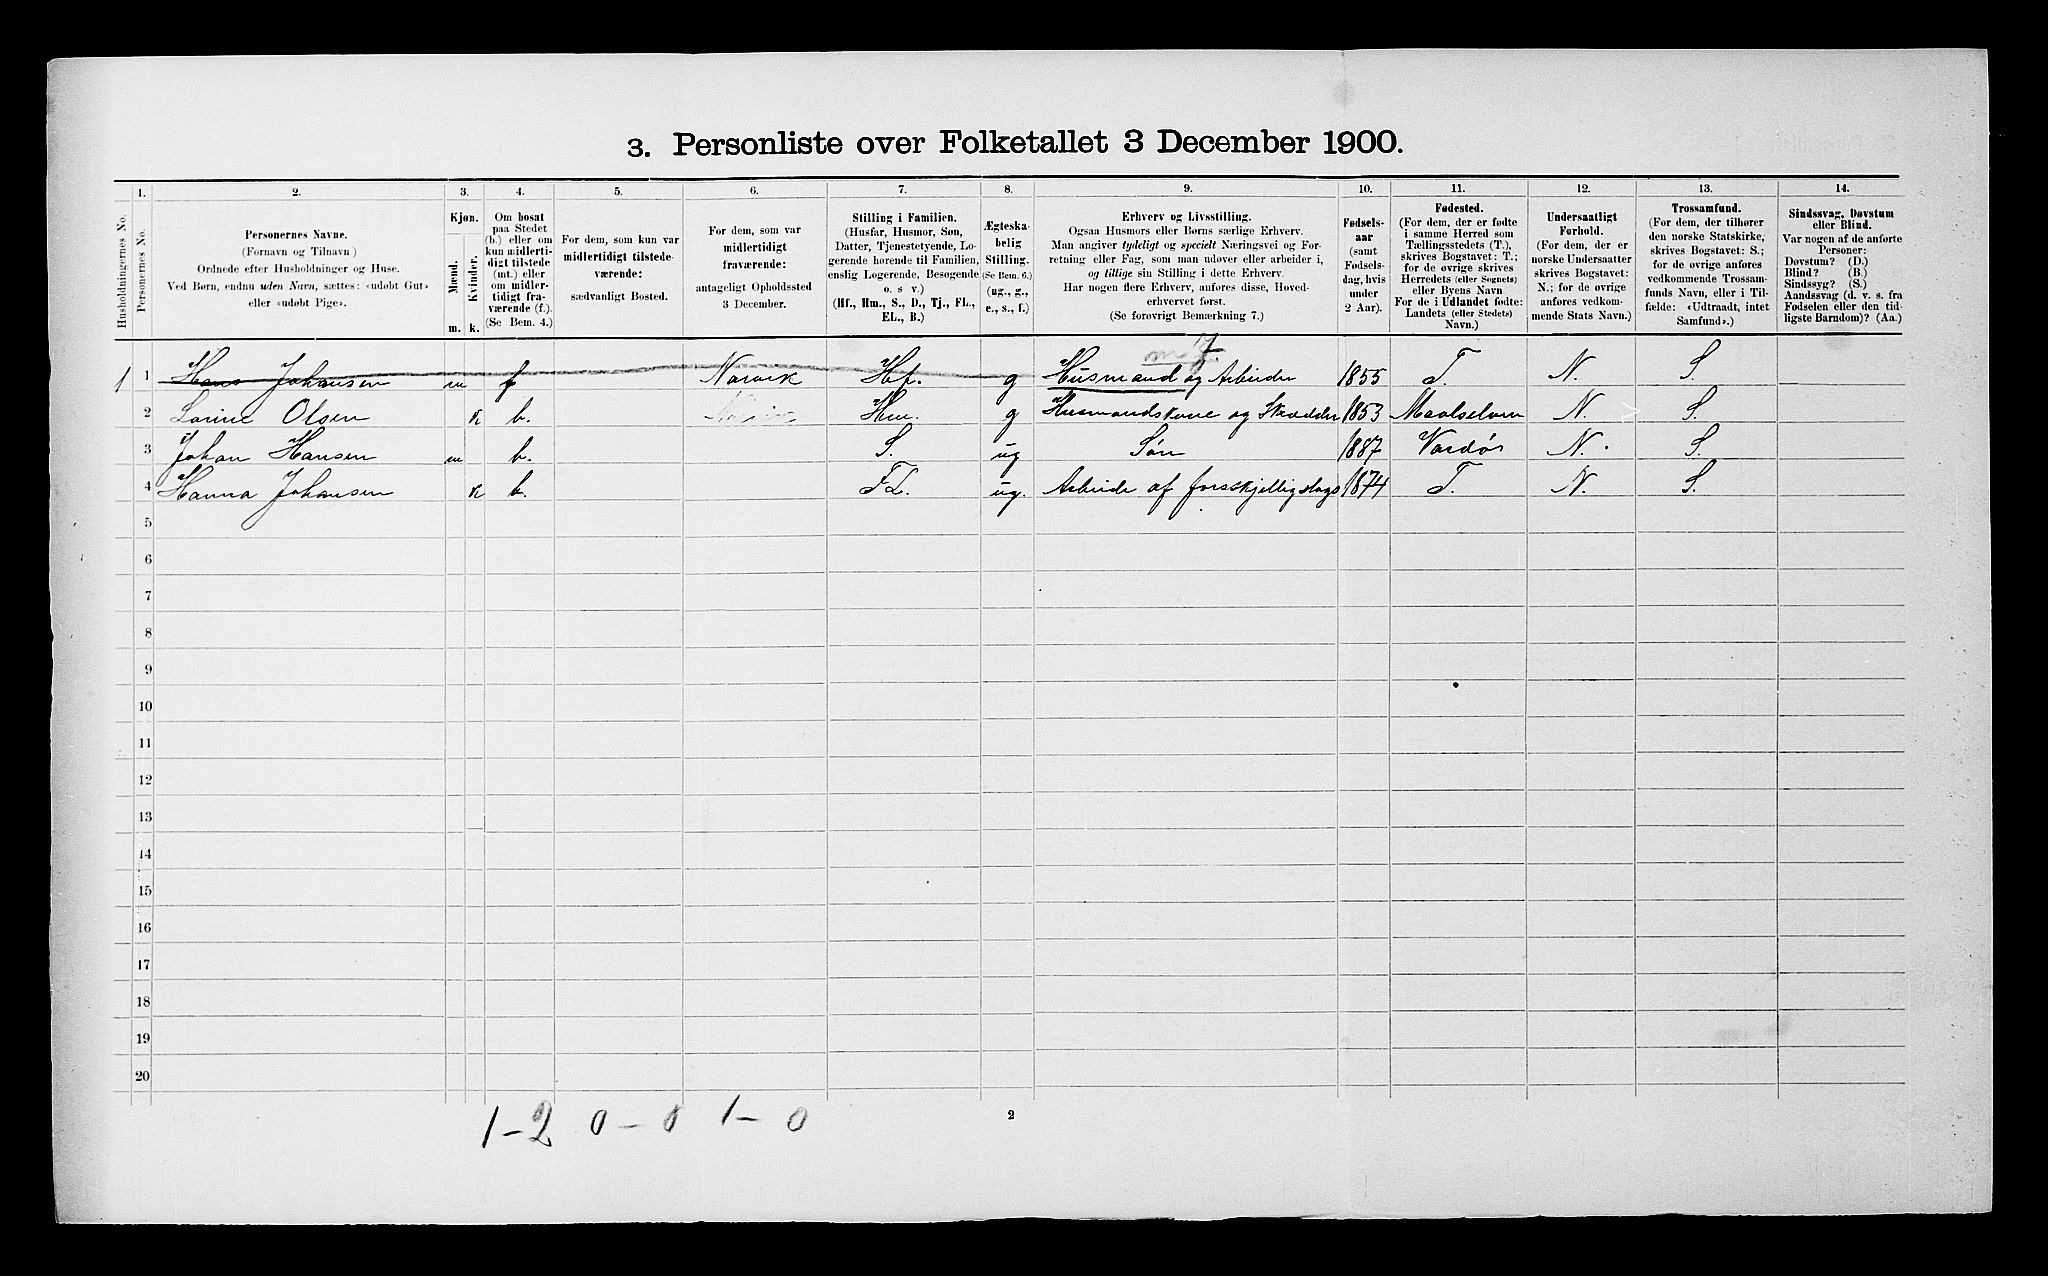 3. Personliste over Folketallet 3 December 1900.
1. 2. 3. 4. 5. 6. 7. 8. 9. 10. 11. 12. 13. 14.
Husholdningernes No.
Personernes No.
Personernes Navne.
(Fornavn og Tilnavn)
Ordnede efter Husholdninger og Huse.
Ved Børn, endnu uden Navn, sættes: «udøbt Gut»
eller «udøbt Pige».
Kjøn.
Mænd.
Kvinder.
m. k.
Om bosat
paa Stedet
(b.) eller om
kun midlerti-
digt tilstede
(mt.) eller
om midler-
tidigt fra-
værende (f.).
(Se Bem. 4.)
For dem, som kun var
midlertidigt tilstede-
værende:
sædvanligt Bosted.
For dem, som var
midlertidigt
fraværende:
antageligt Opholdssted
3 December.
Stilling i Familien.
(Husfar, Husmor, Søn,
Datter, Tjenestetyende, Lo-
gerende hørende til Familien,
enslig Logerende, Besøgende
o. s v.)
(Hf., Hm., S., D., Tj., FL.,
EL., B.)
Ægteska-
belig
Stilling.
(Se Bem. 6.)
(ug., g.,
e., s., f.)
Erhverv og Livsstilling.
Ogsaa Husmors eller Børns særlige Erhverv.
Man angiver tydeligt og specielt Næringsvei og For-
retning eller Fag, som man udøver eller arbeider i,
og tillige sin Stilling i dette Erhverv.
Har nogen flere Erhverv, anføres disse, Hoved-
erhvervet først.
(Se forøvrigt Bemærkning 7.)
Fødsels-
aar
(samt
Fødsels-
dag, hvis
under
2 Aar).
Fødested.
(For dem, der er fødte
i samme Herred som
Tællingsstedets (T.),
skrives Bogstavet: T.;
for de øvrige skrives
Herredets (eller Sognets)
eller Byens Navn
For de i Udlandet fødte:
Landets (eller Stedets)
Navn.)
Undersaatligt
Forhold.
(For dem, der er
norske Undersaatter
skrives Bogstavet:
N.; for de øvrige
anføres vedkom-
mende Stats Navn.)
Trossamfund.
(For dem, der tilhører
den norske Statskirke,
skrives Bogstavet: S.;
for de øvrige anføres
vedkommende Trossam-
funds Navn, eller i Til-
fælde: «Udtraadt, intet
Samfund».)
Sindssvag, Døvstum
eller Blind.
Var nogen af de anførte
Personer:
Døvstum? (D.)
Blind? (B.)
Sindssyg? (S.)
Aandssvag (d. v. s. fra
Fødselen eller den tid-
ligste Barndom)? (Aa.)
1 1 Hans Johansen m f Narvik Hf. g Husmand og Arbeider 1855 T. N. S.
2 Lorine Olsen k b. Narvik Hm. g Husmandskone og Skrædder 1853 Maalselven N. S.
3 Johan Hansen m b. S. ug Søn 1887 Vardø N. S.
4 Hanna Johansen k b. FL. ug. Arbeide af forsskjelligslags 1874 T. N. S.
5
6
7
8
9
10
11
12
13
14
15
16
17
18
19
20
1-2 0-0 1-0
2